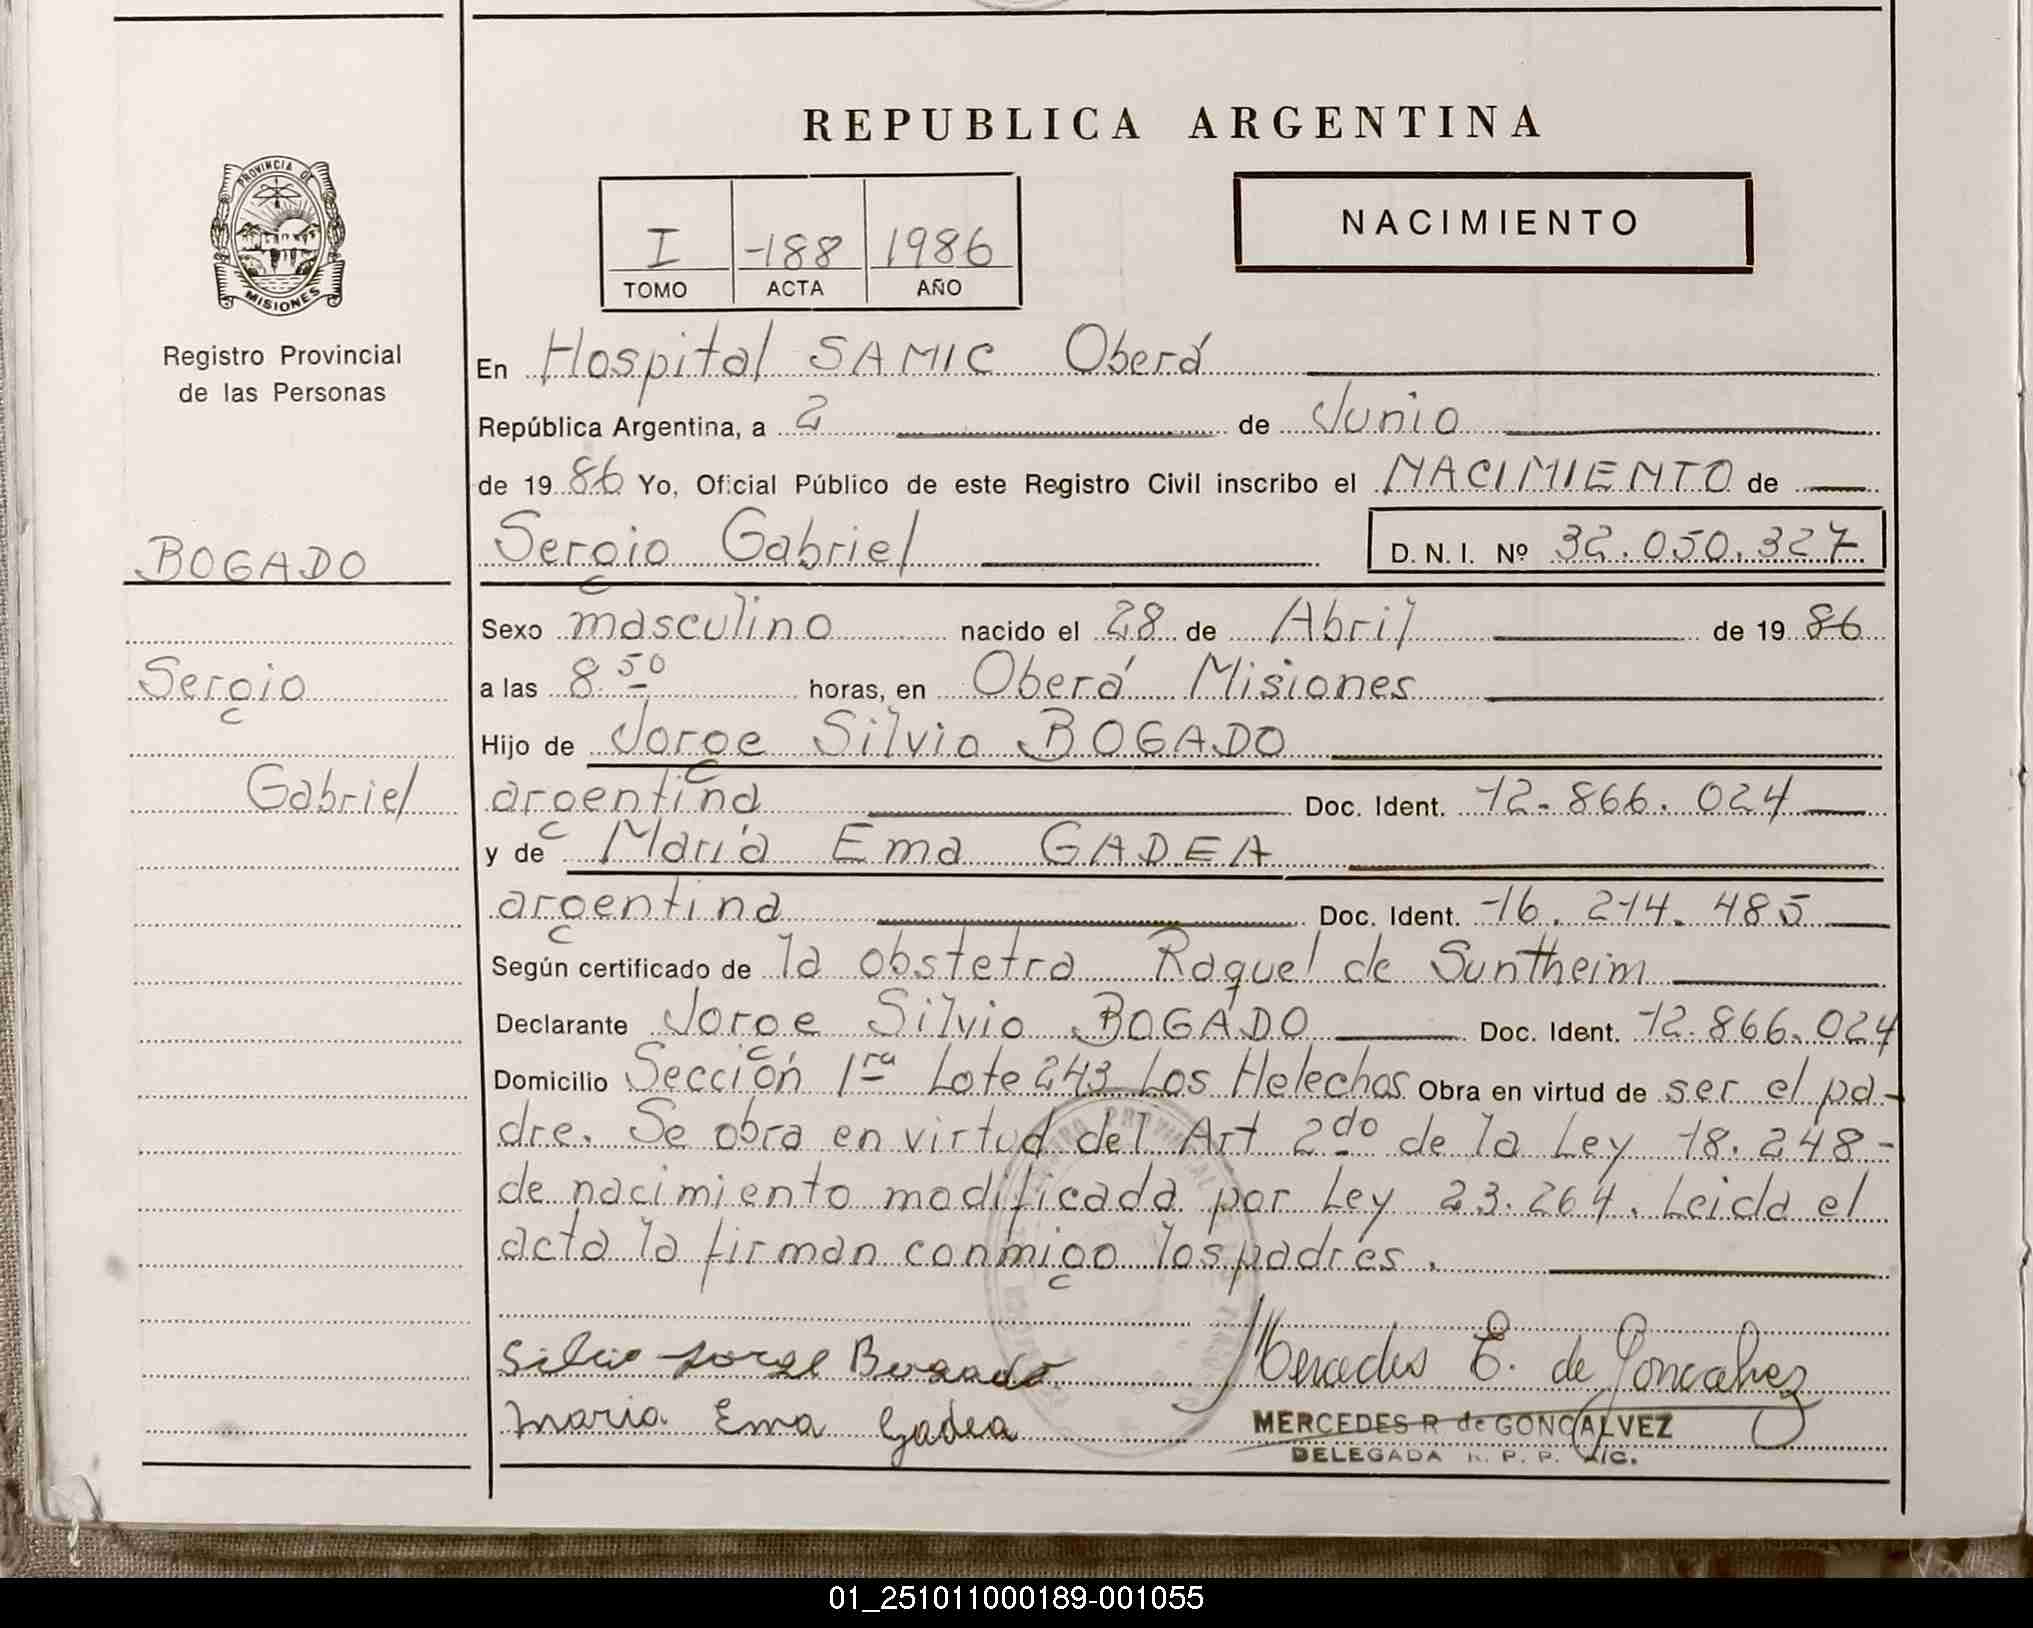 REPUBLICA ARGENTINA
PROVINCIA DE
MISIONES
Registro Provincial
de las Personas
I -188 1986
TOMO ACTA AÑO
NACIMIENTO
En Hospital SAMIC Oberá
República Argentina, a 2 de Junio
de 1986 Yo, Oficial Público de este Registro Civil inscribo el NACIMIENTO de
BOGADO
Sergio Gabriel D. N. I. Nº 32.050.327
Sexo masculino nacido el 28 de Abril de 1986
Sergio
a las 8 50 horas, en Oberá Misiones
Hijo de Jorge Silvio BOGADO
Gabriel
argentina Doc. Ident. 12.866.024
y de María Ema GADEA
argentina Doc. Ident. 16.214.485
Según certificado de la obstetra Raquel de Suntheim
Declarante Jorge Silvio BOGADO Doc. Ident. 12.866.024
Domicilio Sección 1ra Lote 243 Los Helechos Obra en virtud de ser el pa-
dre. Se obra en virtud del Art 2do de la Ley 18.248-
de nacimiento modificada por Ley 23.264. Leida el
acta la firman conmigo los padres.
Silvio Jorge Bogado
Mercedes E. de Goncalvez
Maria Ema Gadea
MERCEDES R de GONCALVEZ
DELEGADA R. P. P.
01_251011000189-001055